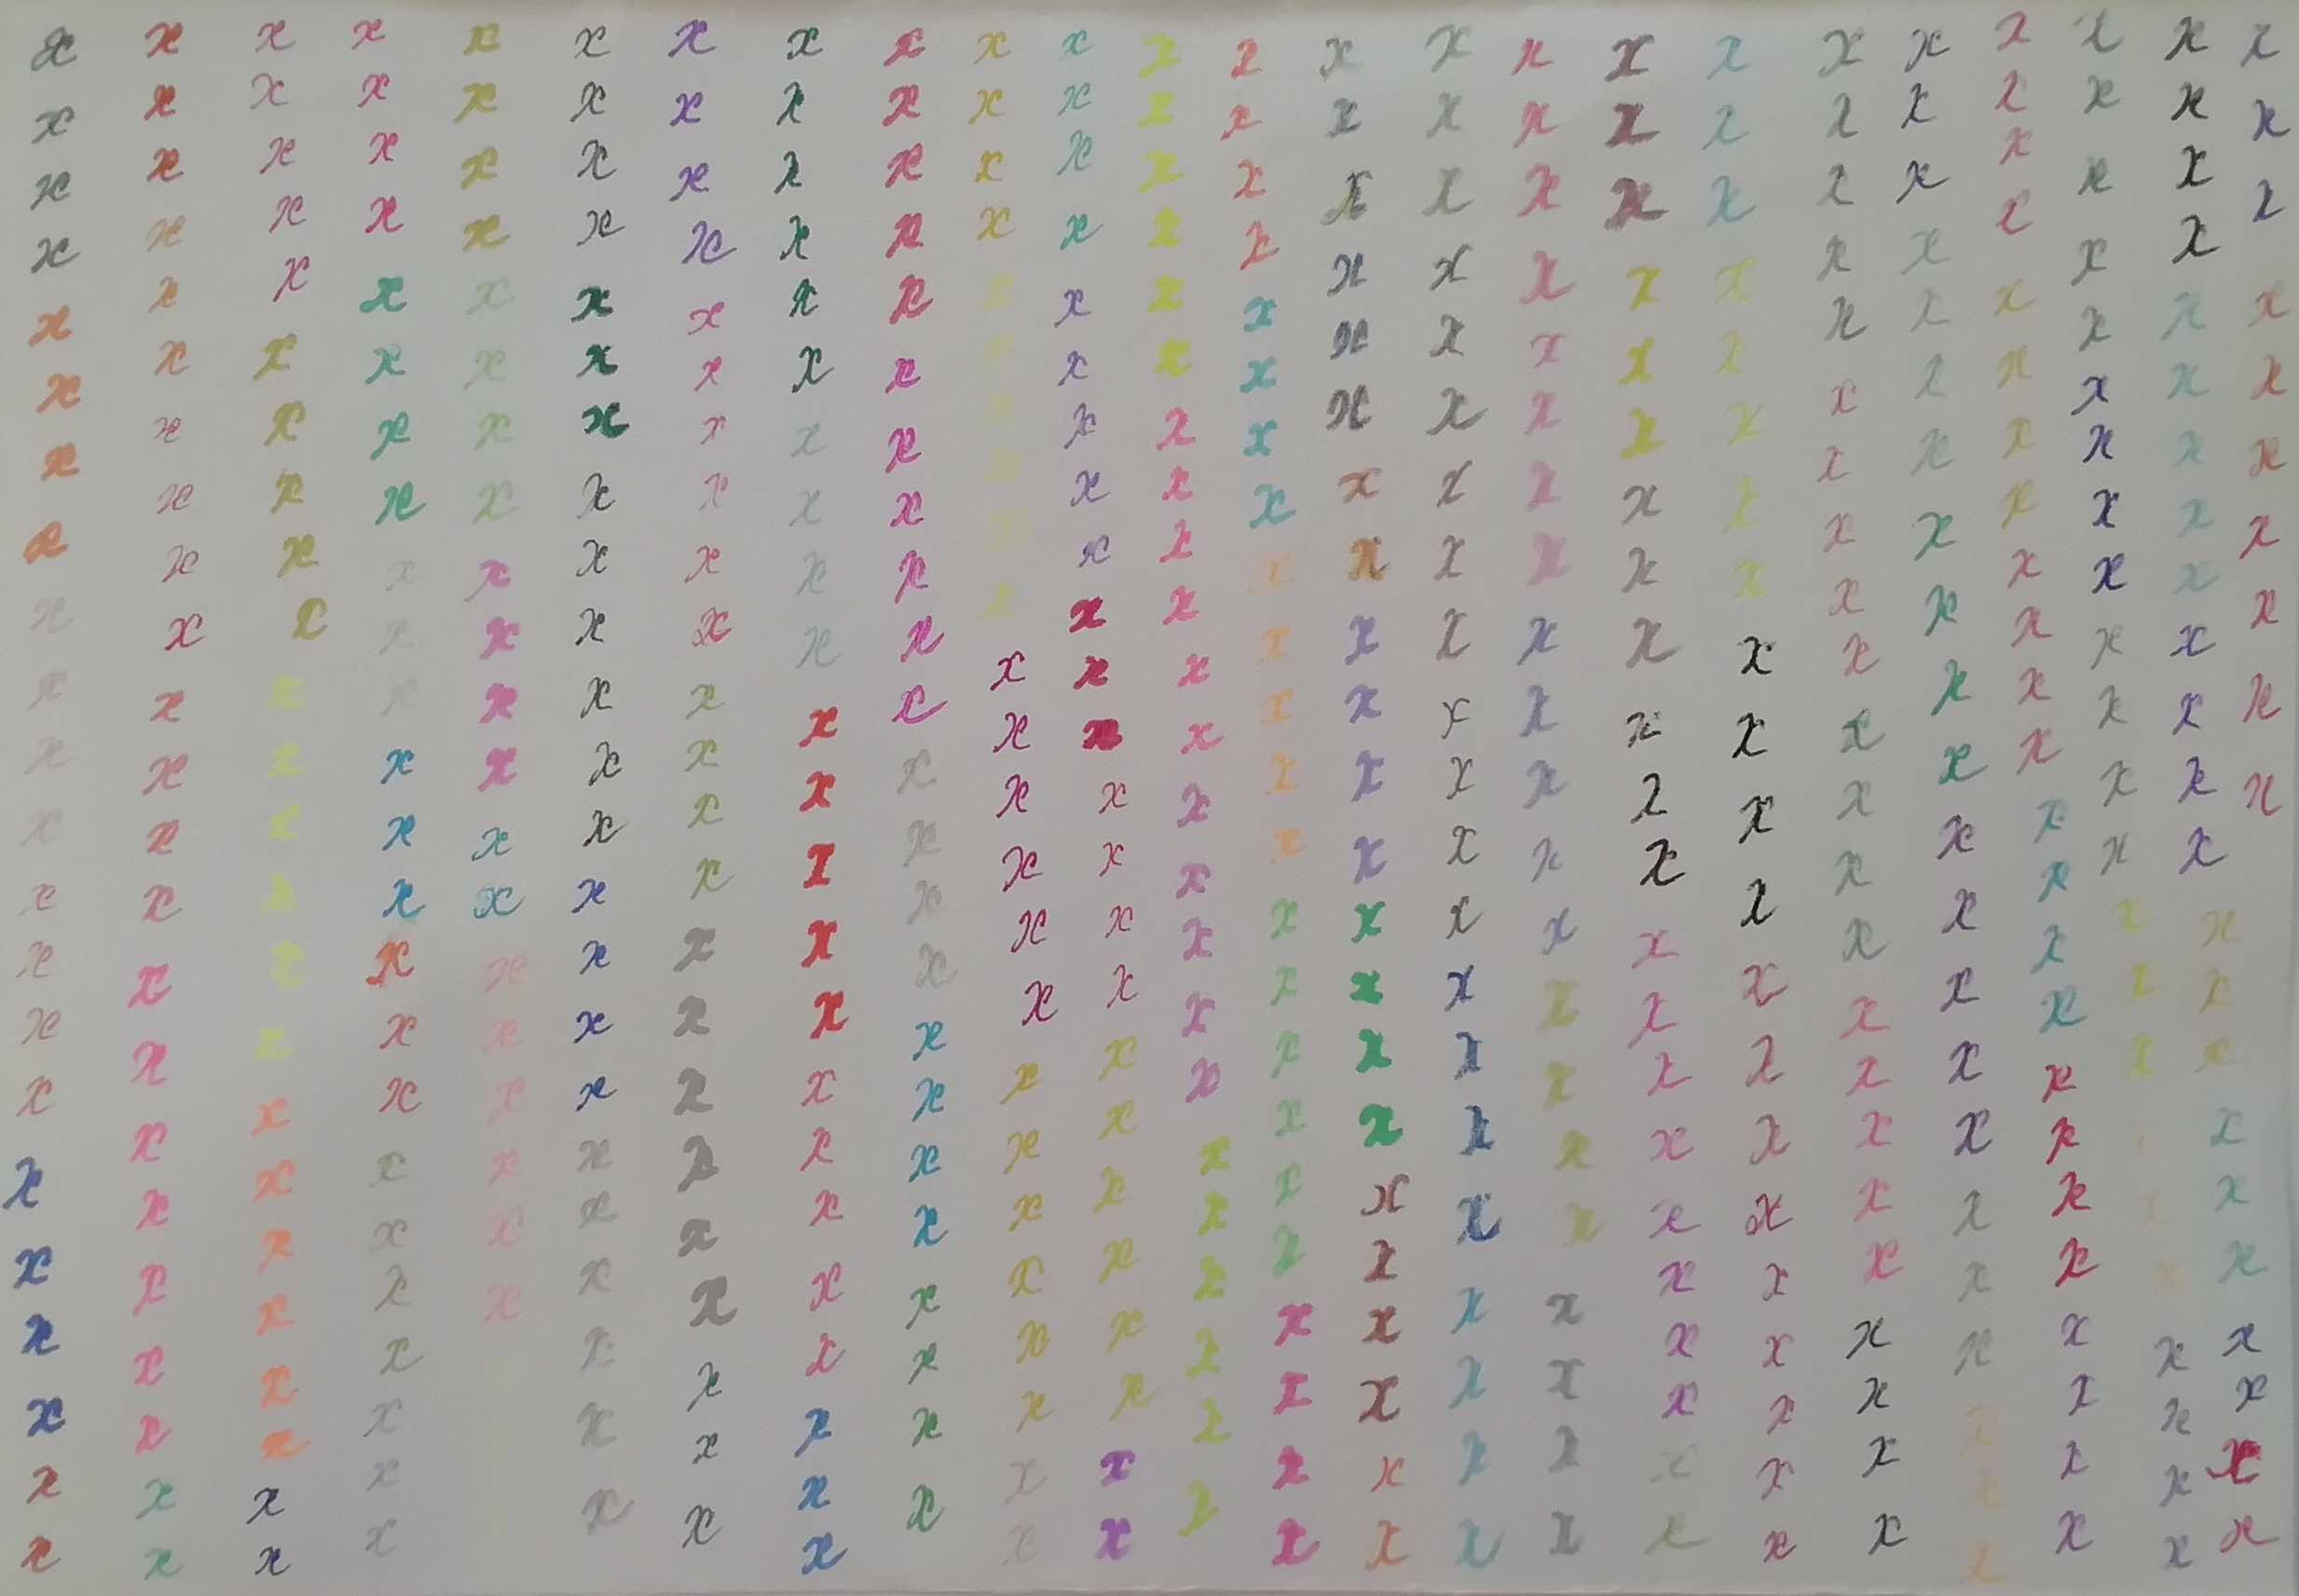 x x x x x x x x x x x x x x x x x x x x x x x x
x x x x x x x x x x x x x x x x x x x x x x x x
x x x x x x x x x x x x x x x x x x x x x x x x
x x x x x x x x x x x x x x x x x x x x x x x x
x x x x x x x x x x x x x x x x x x x x x x x x
x x x x x x x x x x x x x x x x x x x x x x x x
x x x x x x x x x x x x x x x x x x x x x x x x
x x x x x x x x x x x x x x x x x x x x x x x x
x x x x x x x x x x x x x x x x x x x x x x x x
x x x x x x x x x x x x x x x x x x x x x x x x
x x x x x x x x x x x x x x x x x x x x x x x x
x x x x x x x x x x x x x x x x x x x x x x x x
x x x x x x x x x x x x x x x x x x x x x x x x
x x x x x x x x x x x x x x x x x x x x x x x x
x x x x x x x x x x x x x x x x x x x x x x x x
x x x x x x x x x x x x x x x x x x x x x x x x
x x x x x x x x x x x x x x x x x x x x x x x x
x x x x x x x x x x x x x x x x x x x x x x x x
x x x x x x x x x x x x x x x x x x x x x x x x
x x x x x x x x x x x x x x x x x x x x x x x x
x x x x x x x x x x x x x x x x x x x x x x x x
x x x x x x x x x x x x x x x x x x x x x x x x